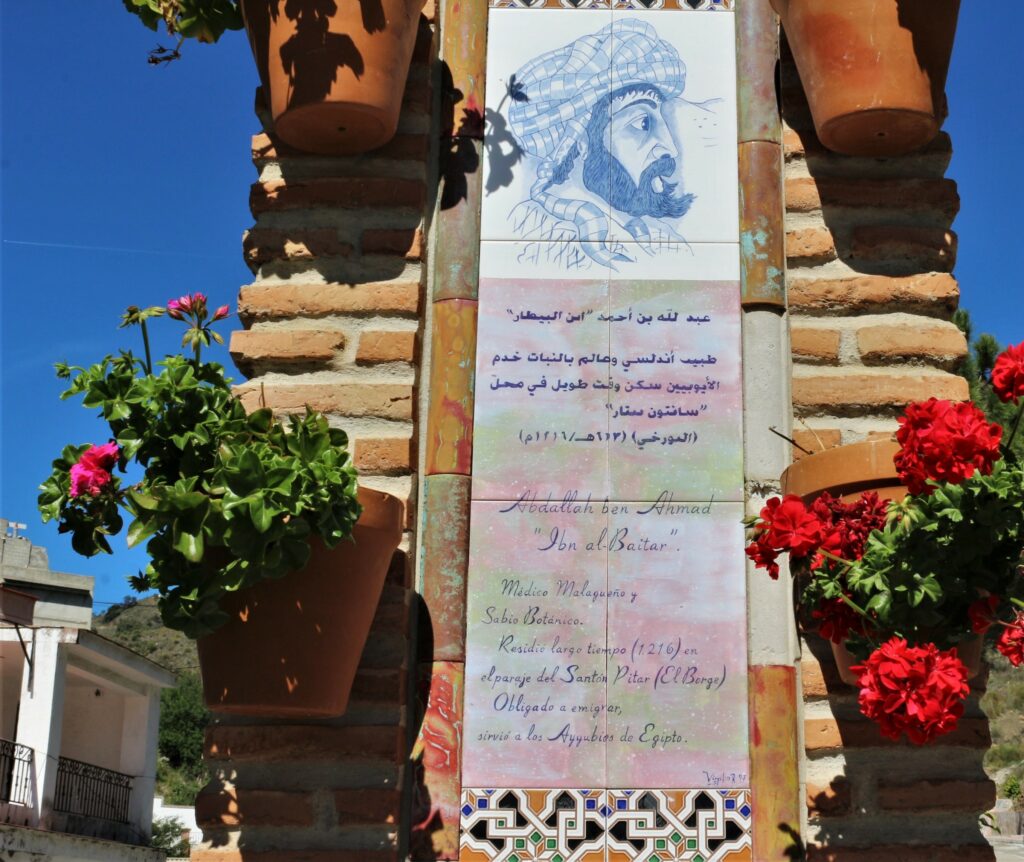 عبد لله بن أحمد "ابن البيطار"
طبيب أندلسي وعالم بالنبات خدم
الأيوبيين سكن وقت طويل في محلّ
"سانتون ستار"
(المورخي) (٦١٣هـ/١٢١٦م)
Abdallah ben Ahmad
"Ibn al-Baitar".
Médico Malagueño y
Sabio Botánico.
Residio largo tiempo (1.216) en
el paraje del Santón Pitar (El Borge)
Obligado a emigrar,
sirvió a los Ayyubíos de Egipto.